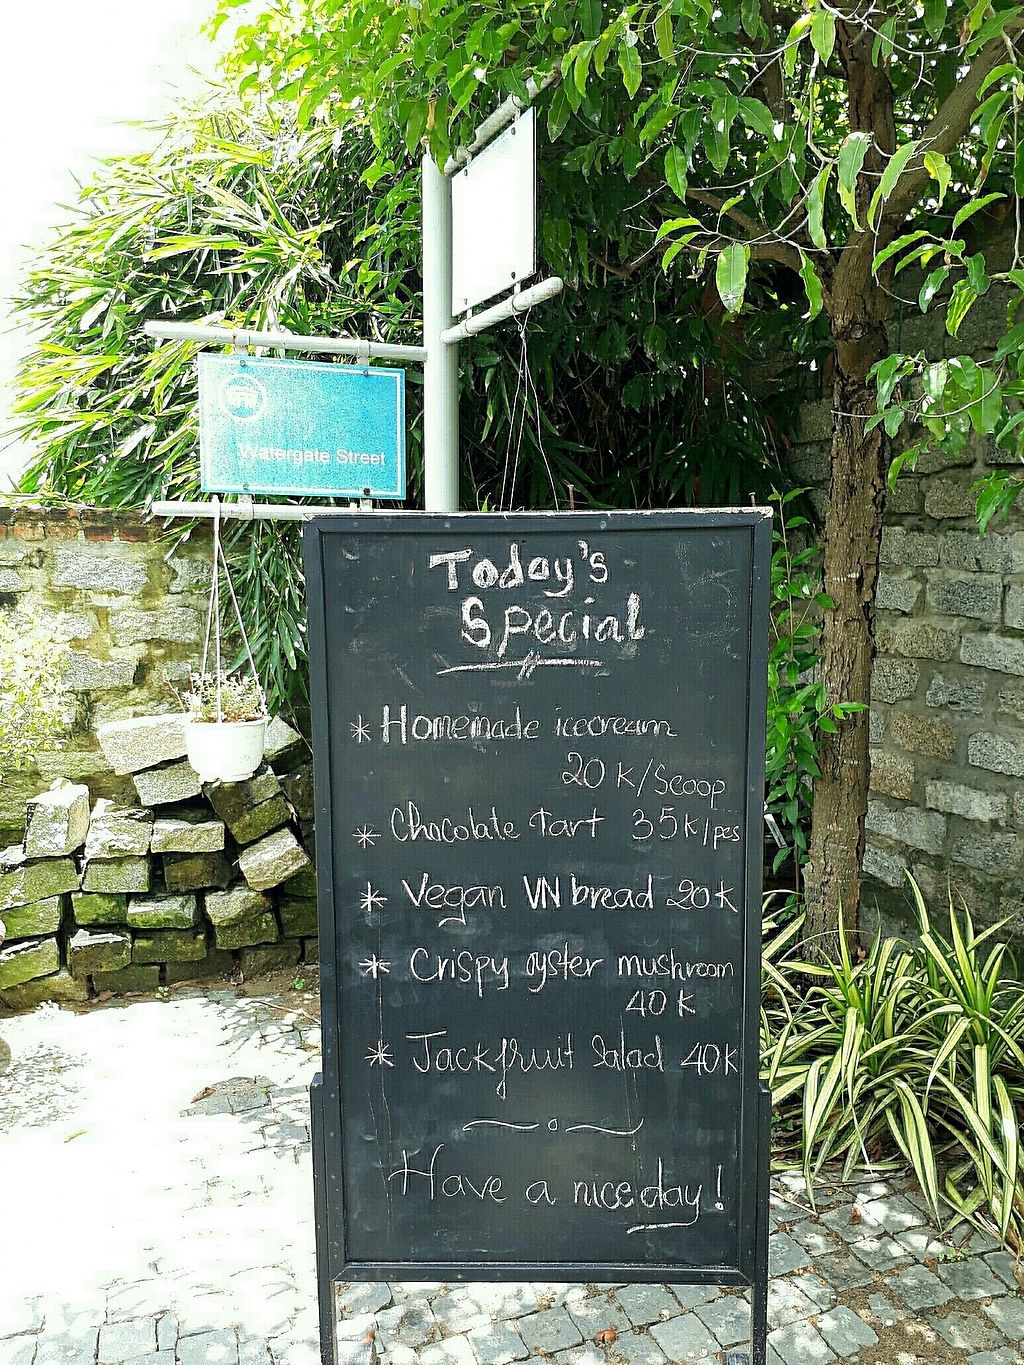 Watergate Street
Today's
Special
HappyCow
* Homemade icecream
20 K/Scoop
* Chocolate Tart 35K/pcs
* Vegan VN bread 20K
* Crispy oyster mushroom
40 K
* Jackfruit Salad 40K
Have a nice day!